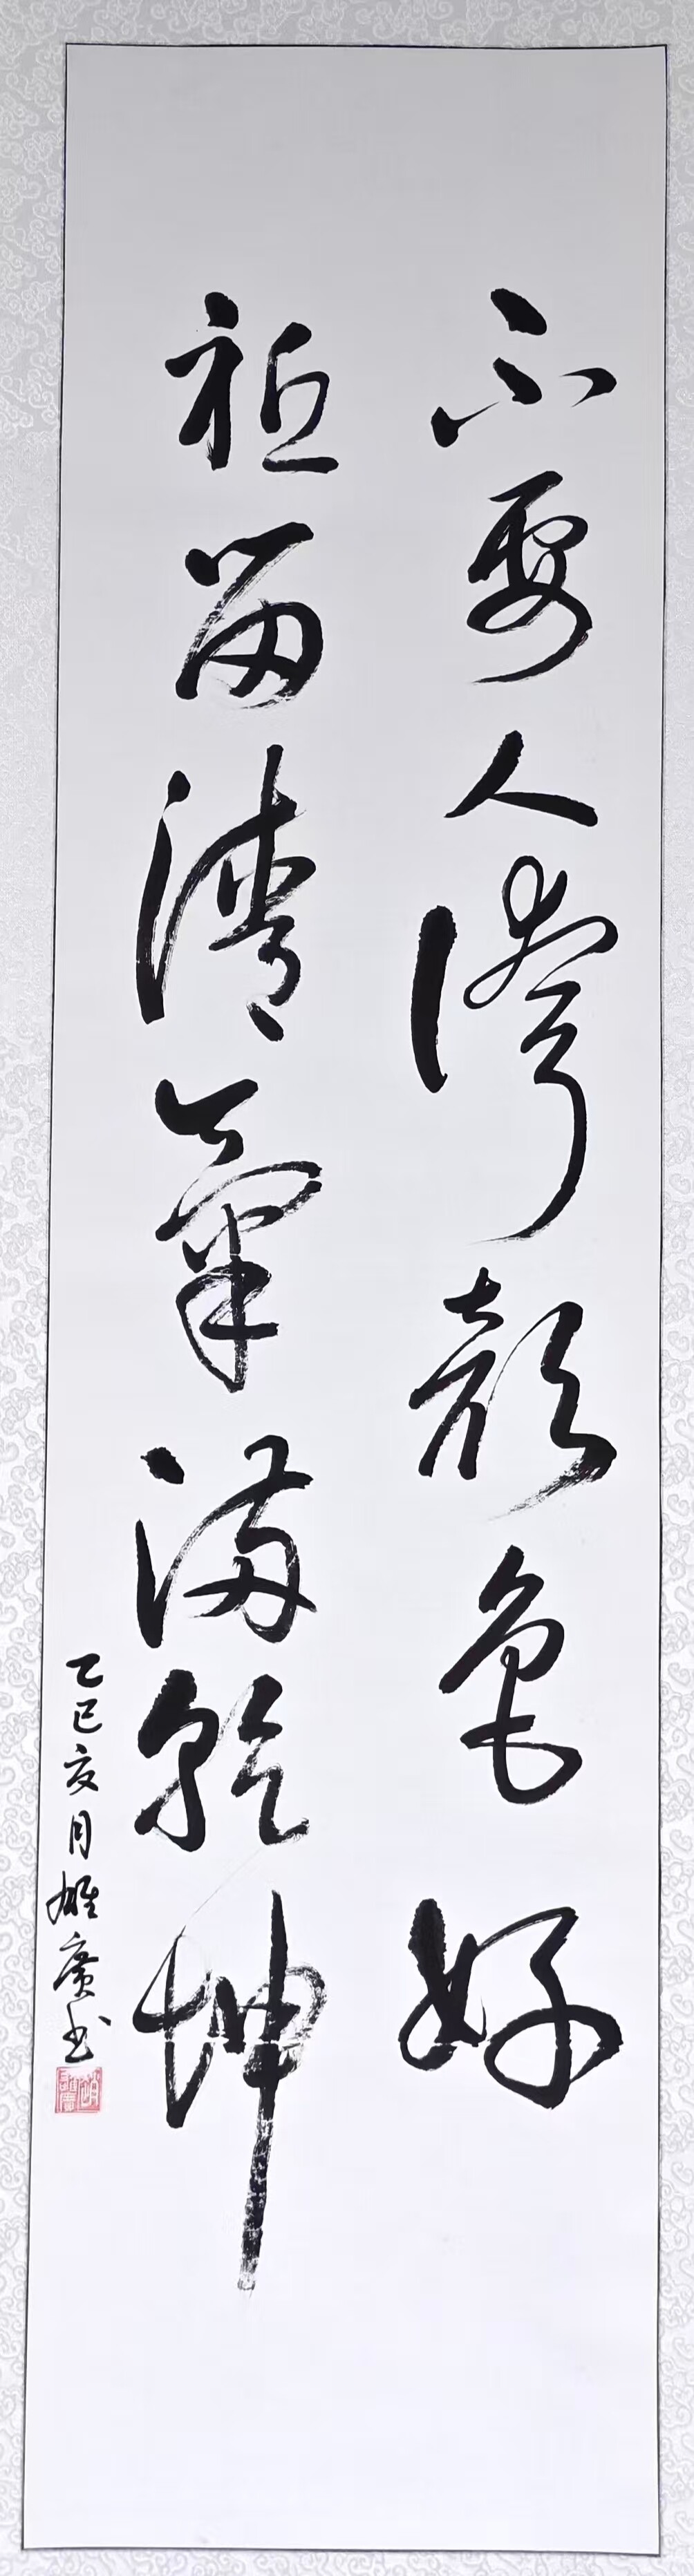 不要人誇顏色好
祗留清氣滿乾坤
乙巳亥月雄廣书